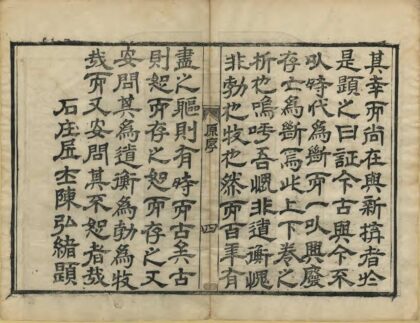 其幸而尚在與新搆者於
是題之曰証今古與今不
㕥時代為斷而一㕥興廢
存亡為斷焉此上下卷之
析也嗚呼吾愧非道衡愧
非勃也牧也然而百年有
原序
四
盡之軀則有時而古矣古
則恕而存之恕而存之又
安問其為道衡為勃為牧
哉而又安問其不恕者哉
石庄居士陳弘緒題